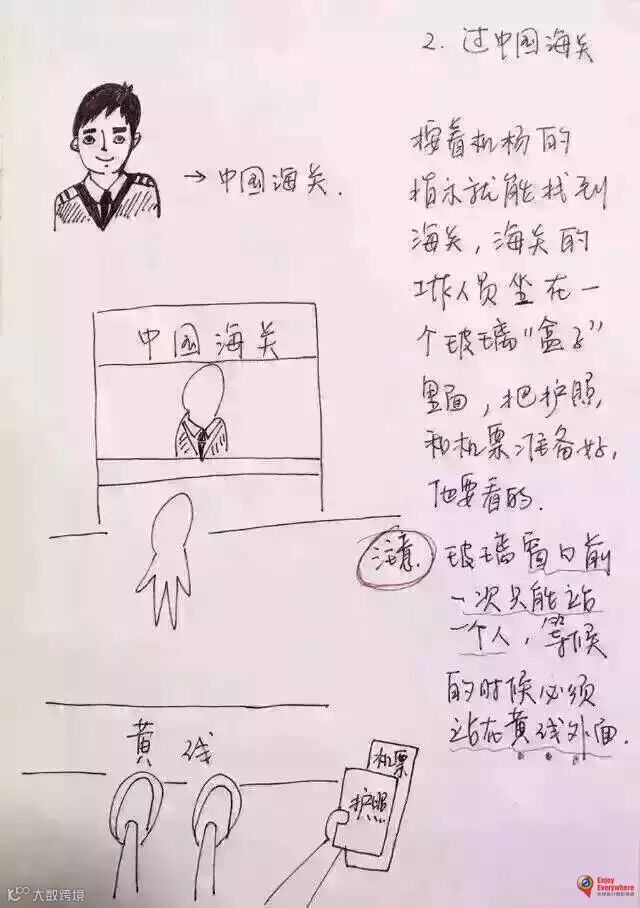 2. 过中国海关
→中国海关.
按着机场的
指示就能找到
海关,海关的
工作人员坐在一
个玻璃“盒子”
里面,把护照,
和机票准备好,
他要看的.
中国海关
注意. 玻璃窗口前
一次只能站
一个人,等候
的时候必须
站在黄线外面.
黄线
机票
护照
大数跨境
Enjoy
Everywhere